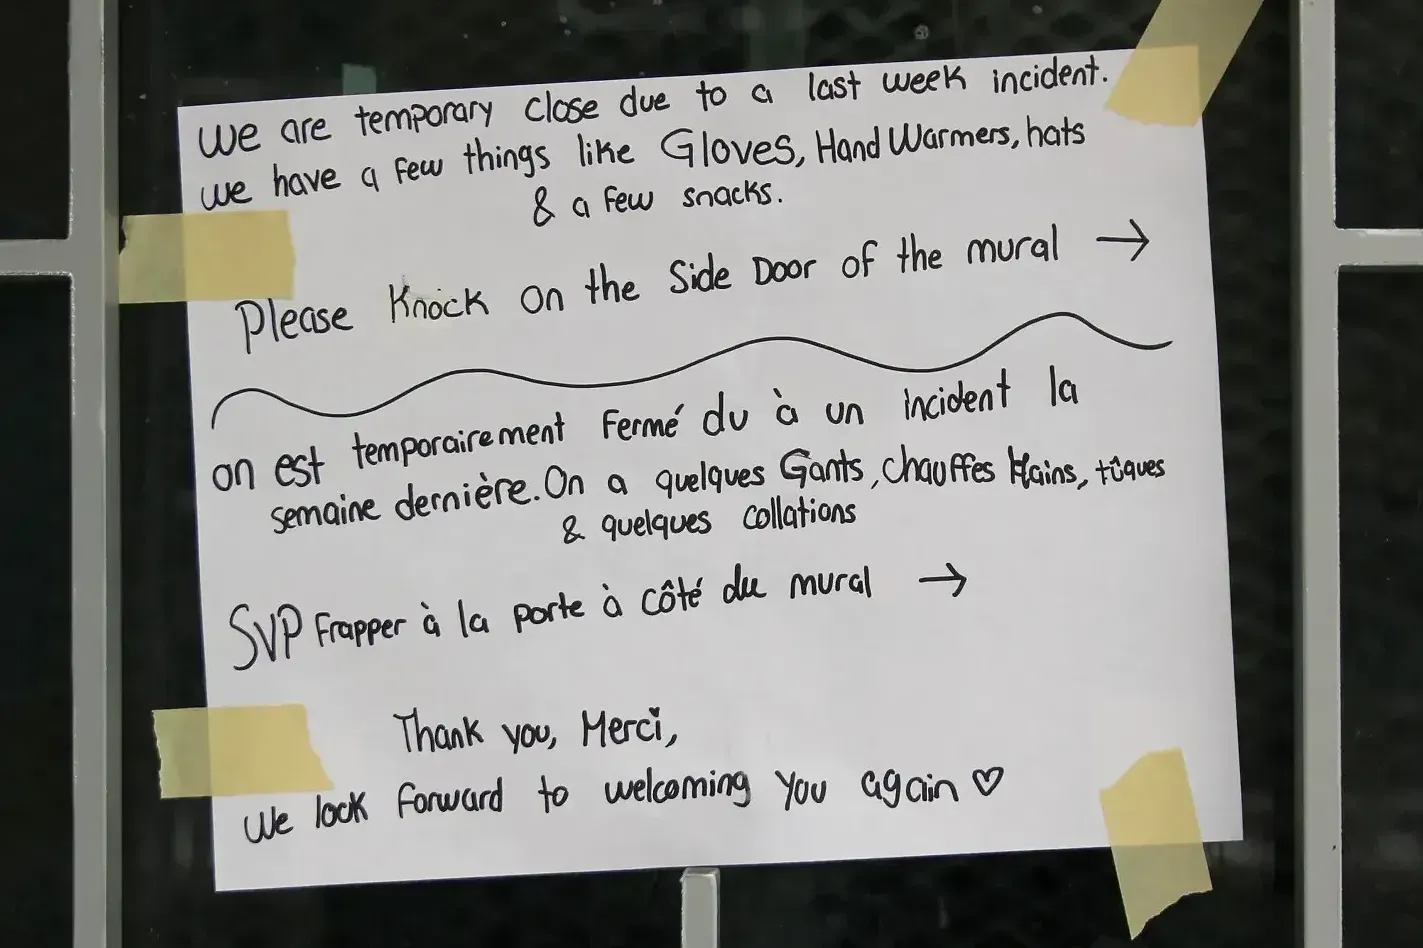 We are temporary close due to a last week incident.
we have a few things like Gloves, Hand Warmers, hats
& a few snacks.
Please Knock on the Side Door of the mural →
on est temporairement Fermé du à un incident la
semaine dernière. On a quelques Gants, chauffes Mains, tûques
& quelques collations
SVP Frapper à la porte à côté du mural →
Thank you, Merci,
We look forward to welcoming you again ♡